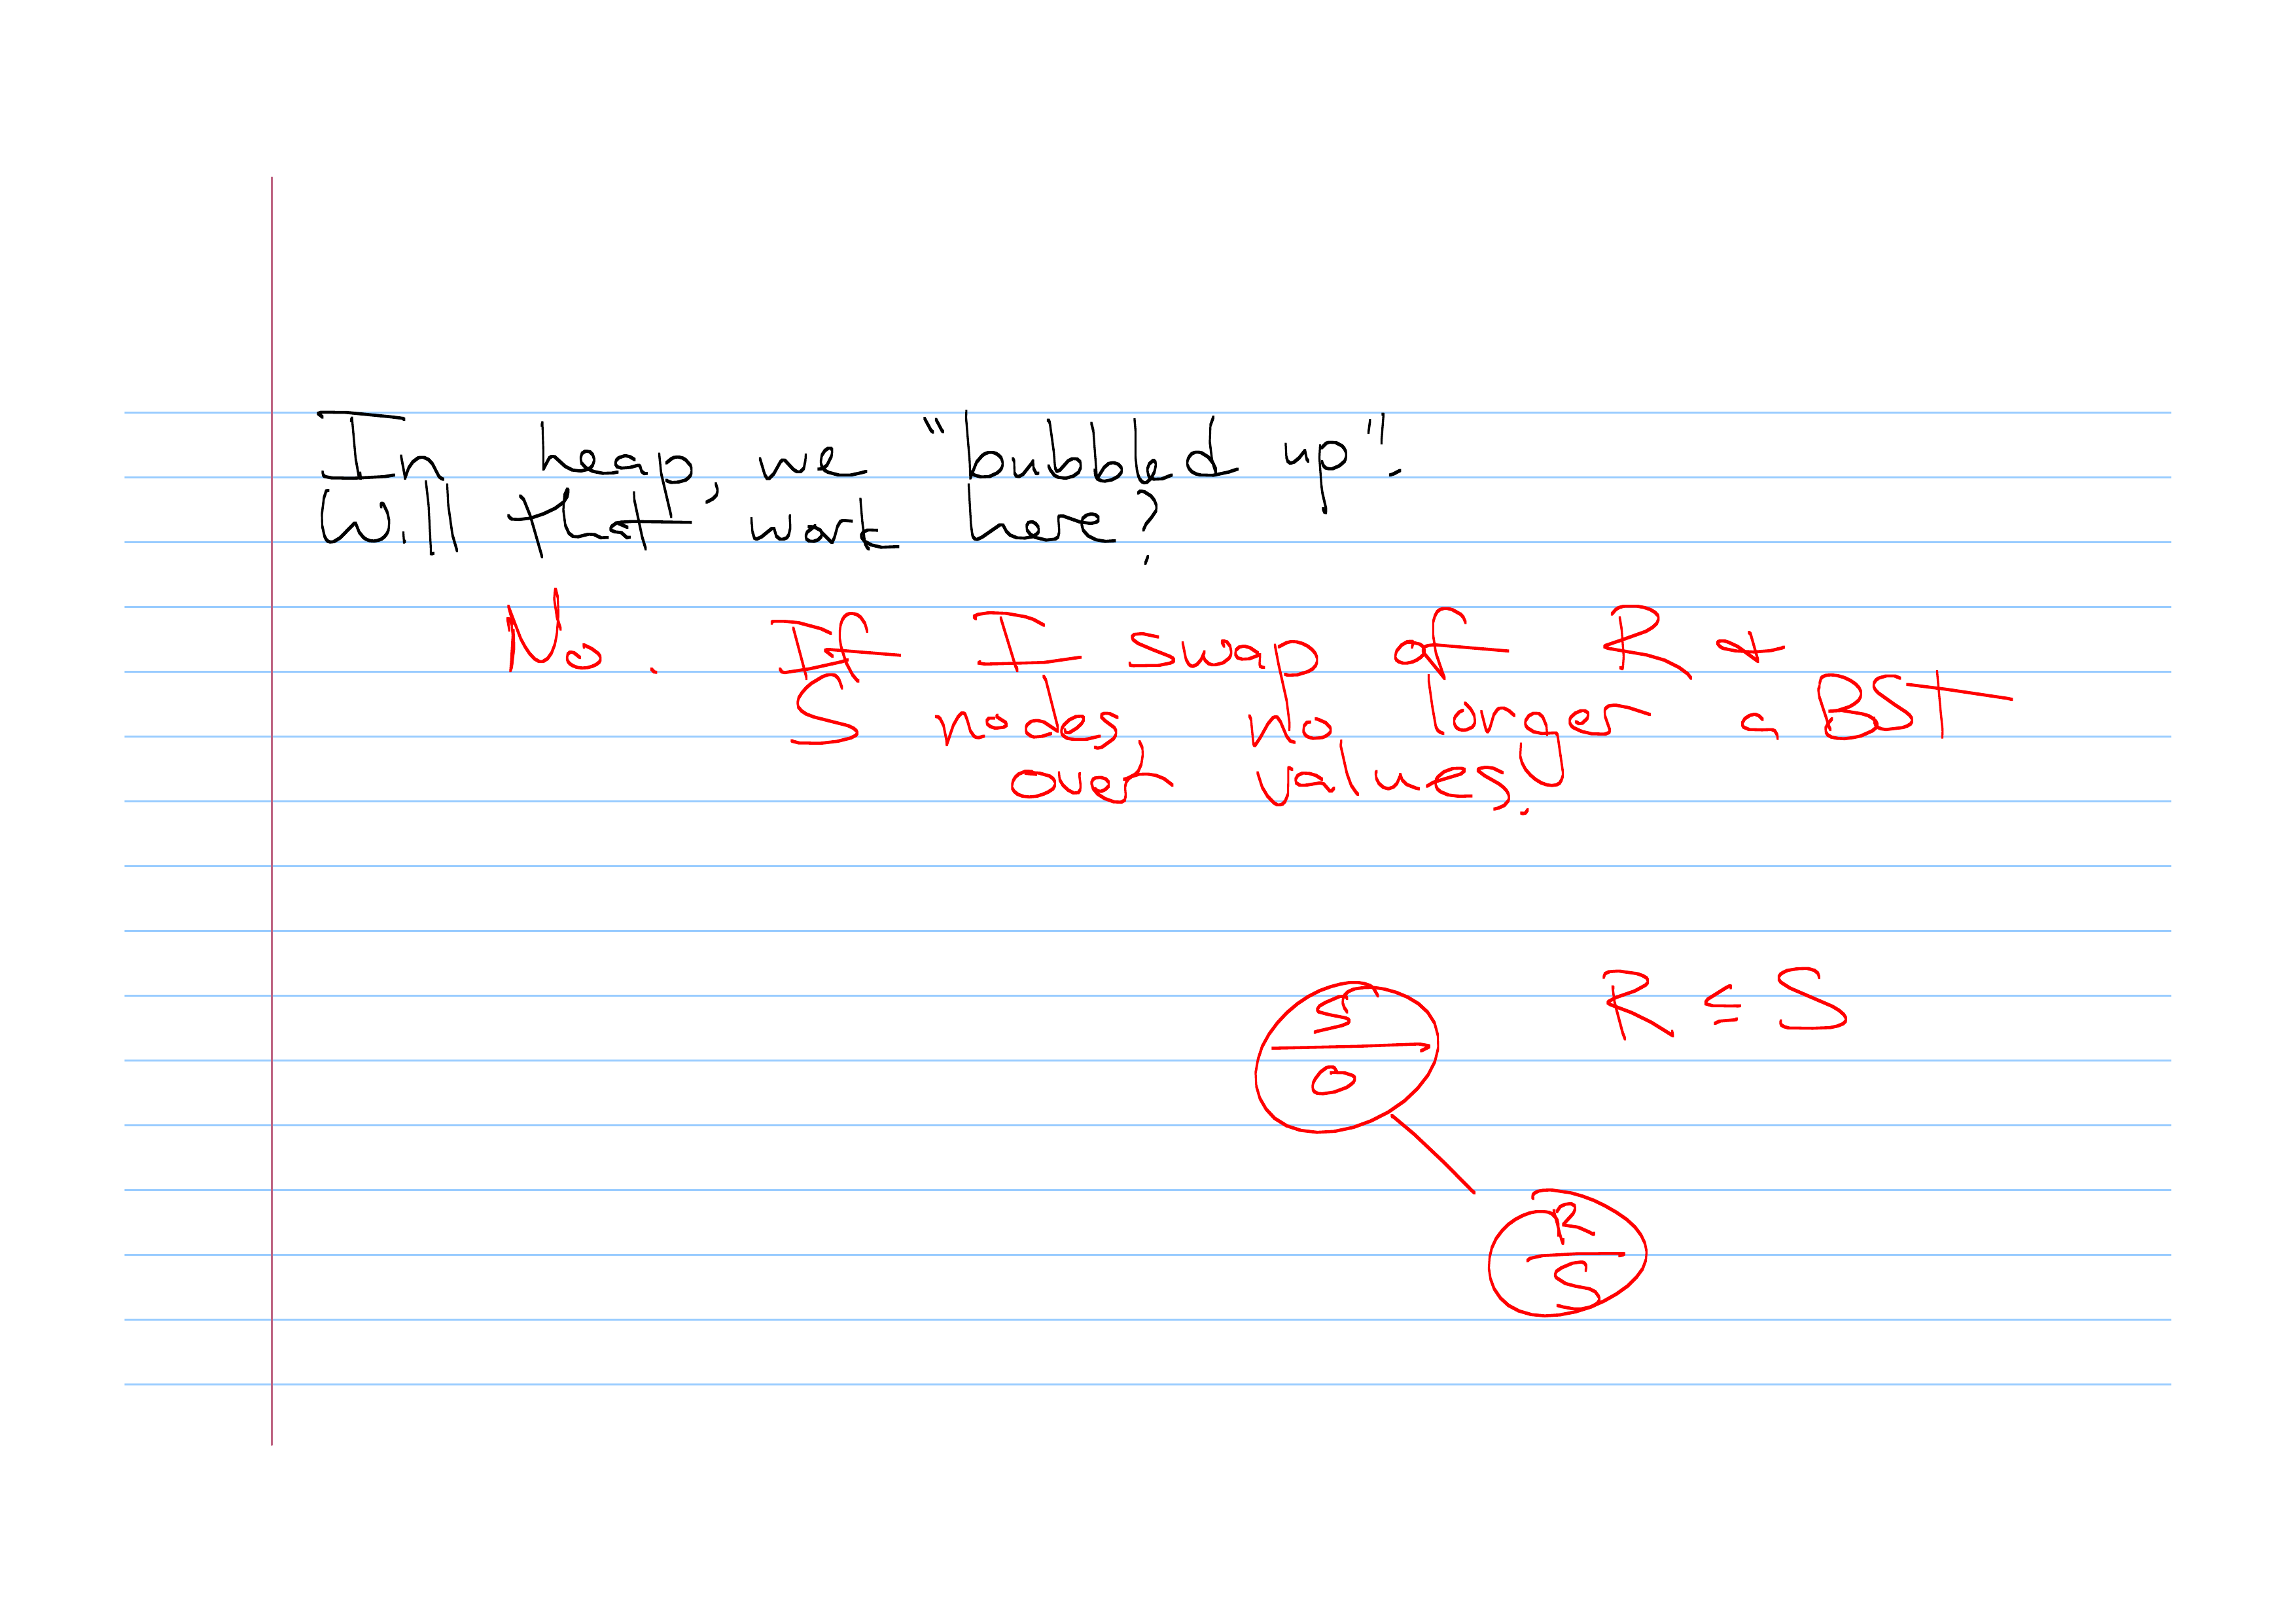 In heap, we "bubbled up".
Will that work here?
No. If I swap of R +
S nodes, no longer a BST
over values.
R ≤ S
S
0
R
5